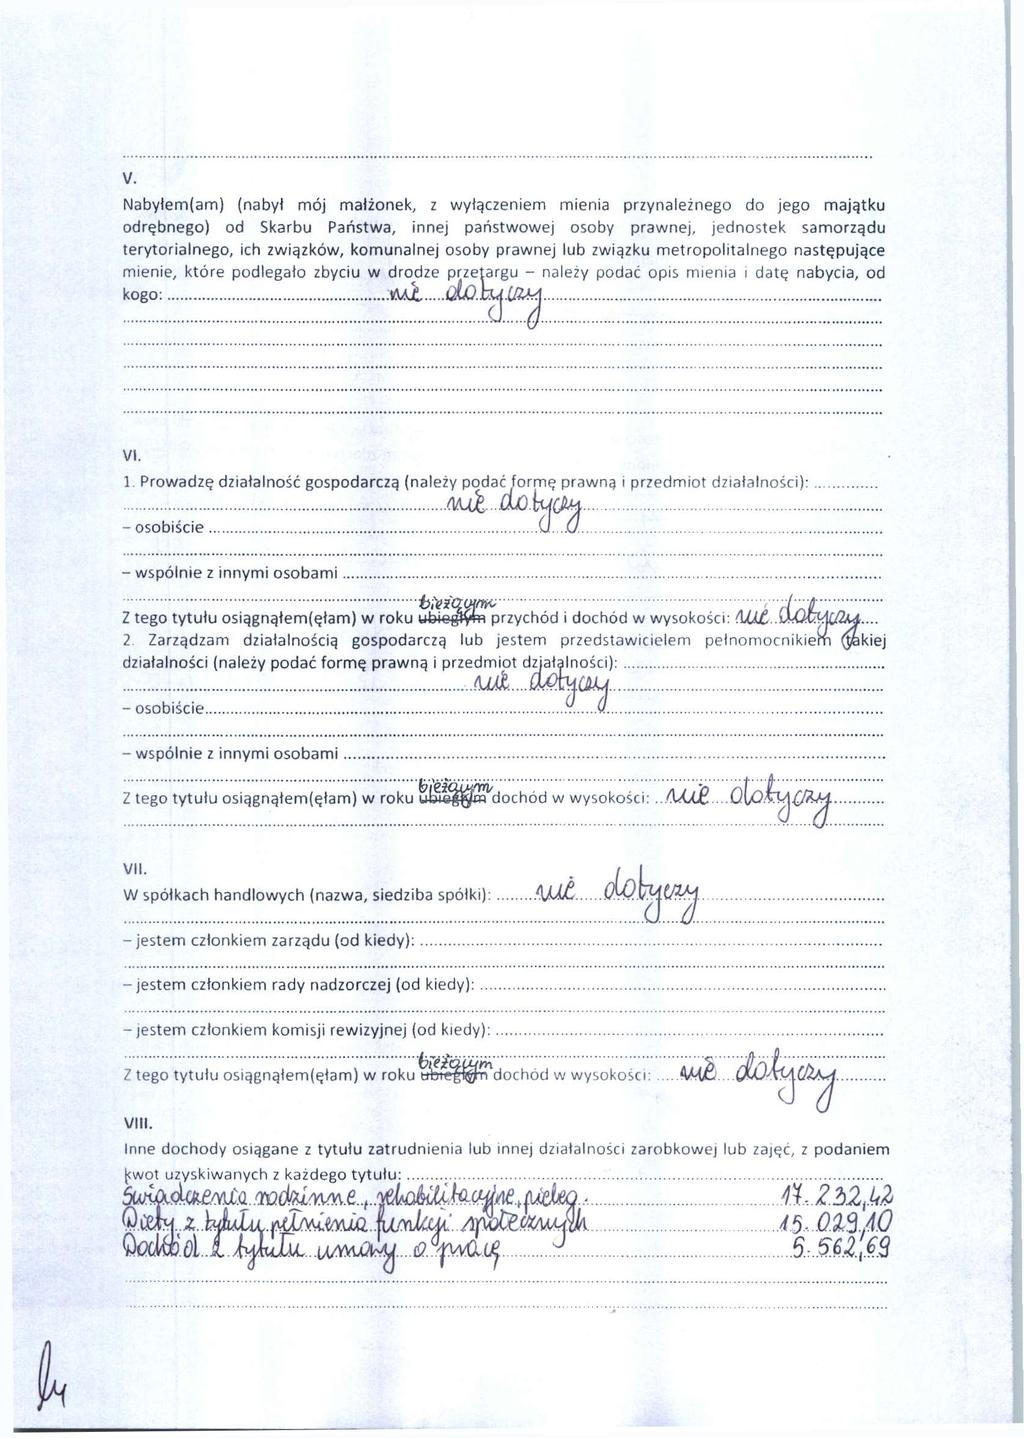 V.
Nabyłem(am) (nabył mój małżonek, z wyłączeniem mienia przynależnego do jego majątku
odrębnego) od Skarbu Państwa, innej państwowej osoby prawnej, jednostek samorządu
terytorialnego, ich związków, komunalnej osoby prawnej lub związku metropolitalnego następujące
mienie, które podlegało zbyciu w drodze przetargu – należy podać opis mienia i datę nabycia, od
kogo: nie dotyczy
VI.
1. Prowadzę działalność gospodarczą (należy podać formę prawną i przedmiot działalności):
nie dotyczy
– osobiście
– wspólnie z innymi osobami
bieżącym
Z tego tytułu osiągnąłem(ęłam) w roku ubiegłym przychód i dochód w wysokości: nie dotyczy
2. Zarządzam działalnością gospodarczą lub jestem przedstawicielem pełnomocnikiem takiej
działalności (należy podać formę prawną i przedmiot działalności):
nie dotyczy
– osobiście
– wspólnie z innymi osobami
bieżącym
Z tego tytułu osiągnąłem(ęłam) w roku ubiegłym dochód w wysokości: nie dotyczy
VII.
W spółkach handlowych (nazwa, siedziba spółki): nie dotyczy
– jestem członkiem zarządu (od kiedy):
– jestem członkiem rady nadzorczej (od kiedy):
– jestem członkiem komisji rewizyjnej (od kiedy):
bieżącym
Z tego tytułu osiągnąłem(ęłam) w roku ubiegłym dochód w wysokości: nie dotyczy
VIII.
Inne dochody osiągane z tytułu zatrudnienia lub innej działalności zarobkowej lub zajęć, z podaniem
kwot uzyskiwanych z każdego tytułu:
Świadczenia rodzinne, rehabilitacyjne, pielęg. 17.232,42
Diety z tytułu pełnienia funkcji społecznych 15.029,10
Dochód z tytułu umowy o pracę 5.562,69